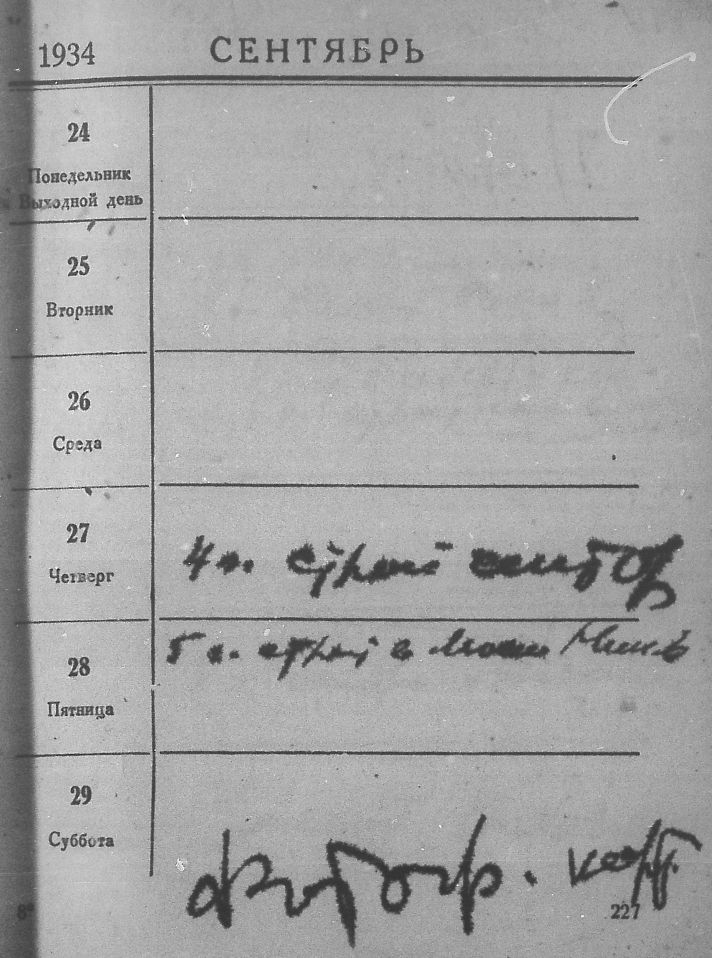 1934 СЕНТЯБРЬ
24
Понедельник
Выходной день
25
Вторник
26
Среда
27
Четверг
4 ч.
28
Пятница
5 ч. с
29
Суббота
227